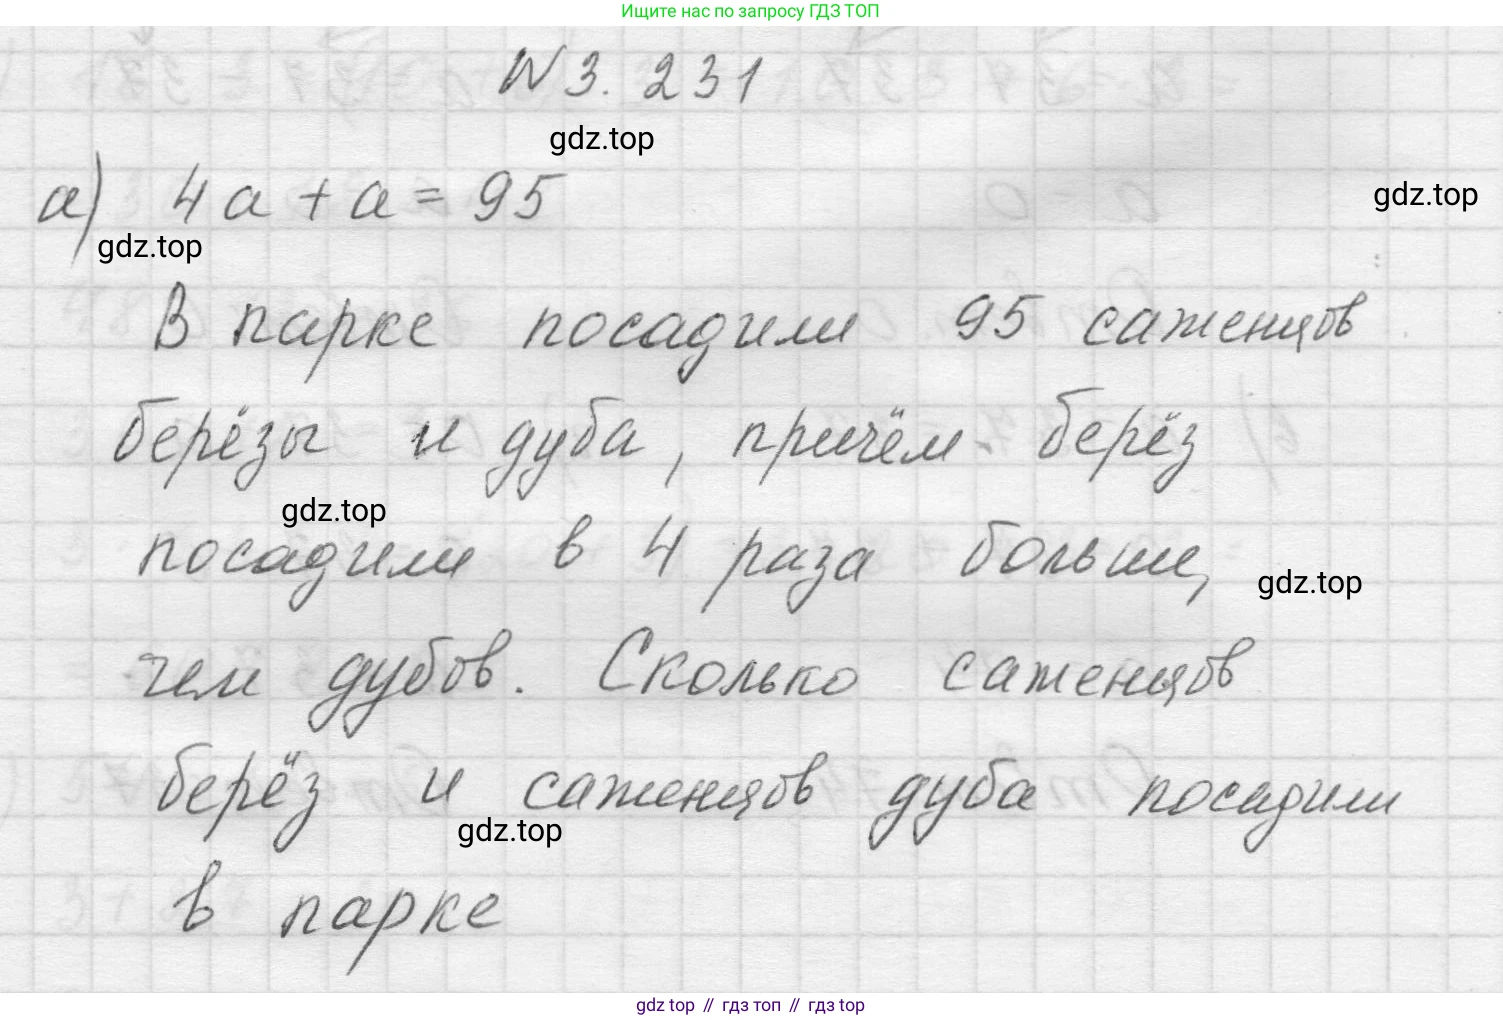 Ищите нас по запросу ГДЗ ТОП
N 3. 231
gdz.top
а) 4а + а = 95
gdz.top
gdz.top
В парке посадили 95 саженцов
берёзы и дуба, причём берёз
gdz.top
посадили в 4 раза больше,
gdz.top
чем дубов. Сколько саженцов
берёз и саженцов дуба посадили
gdz.top
в парке
gdz top // гдз топ // гдз top